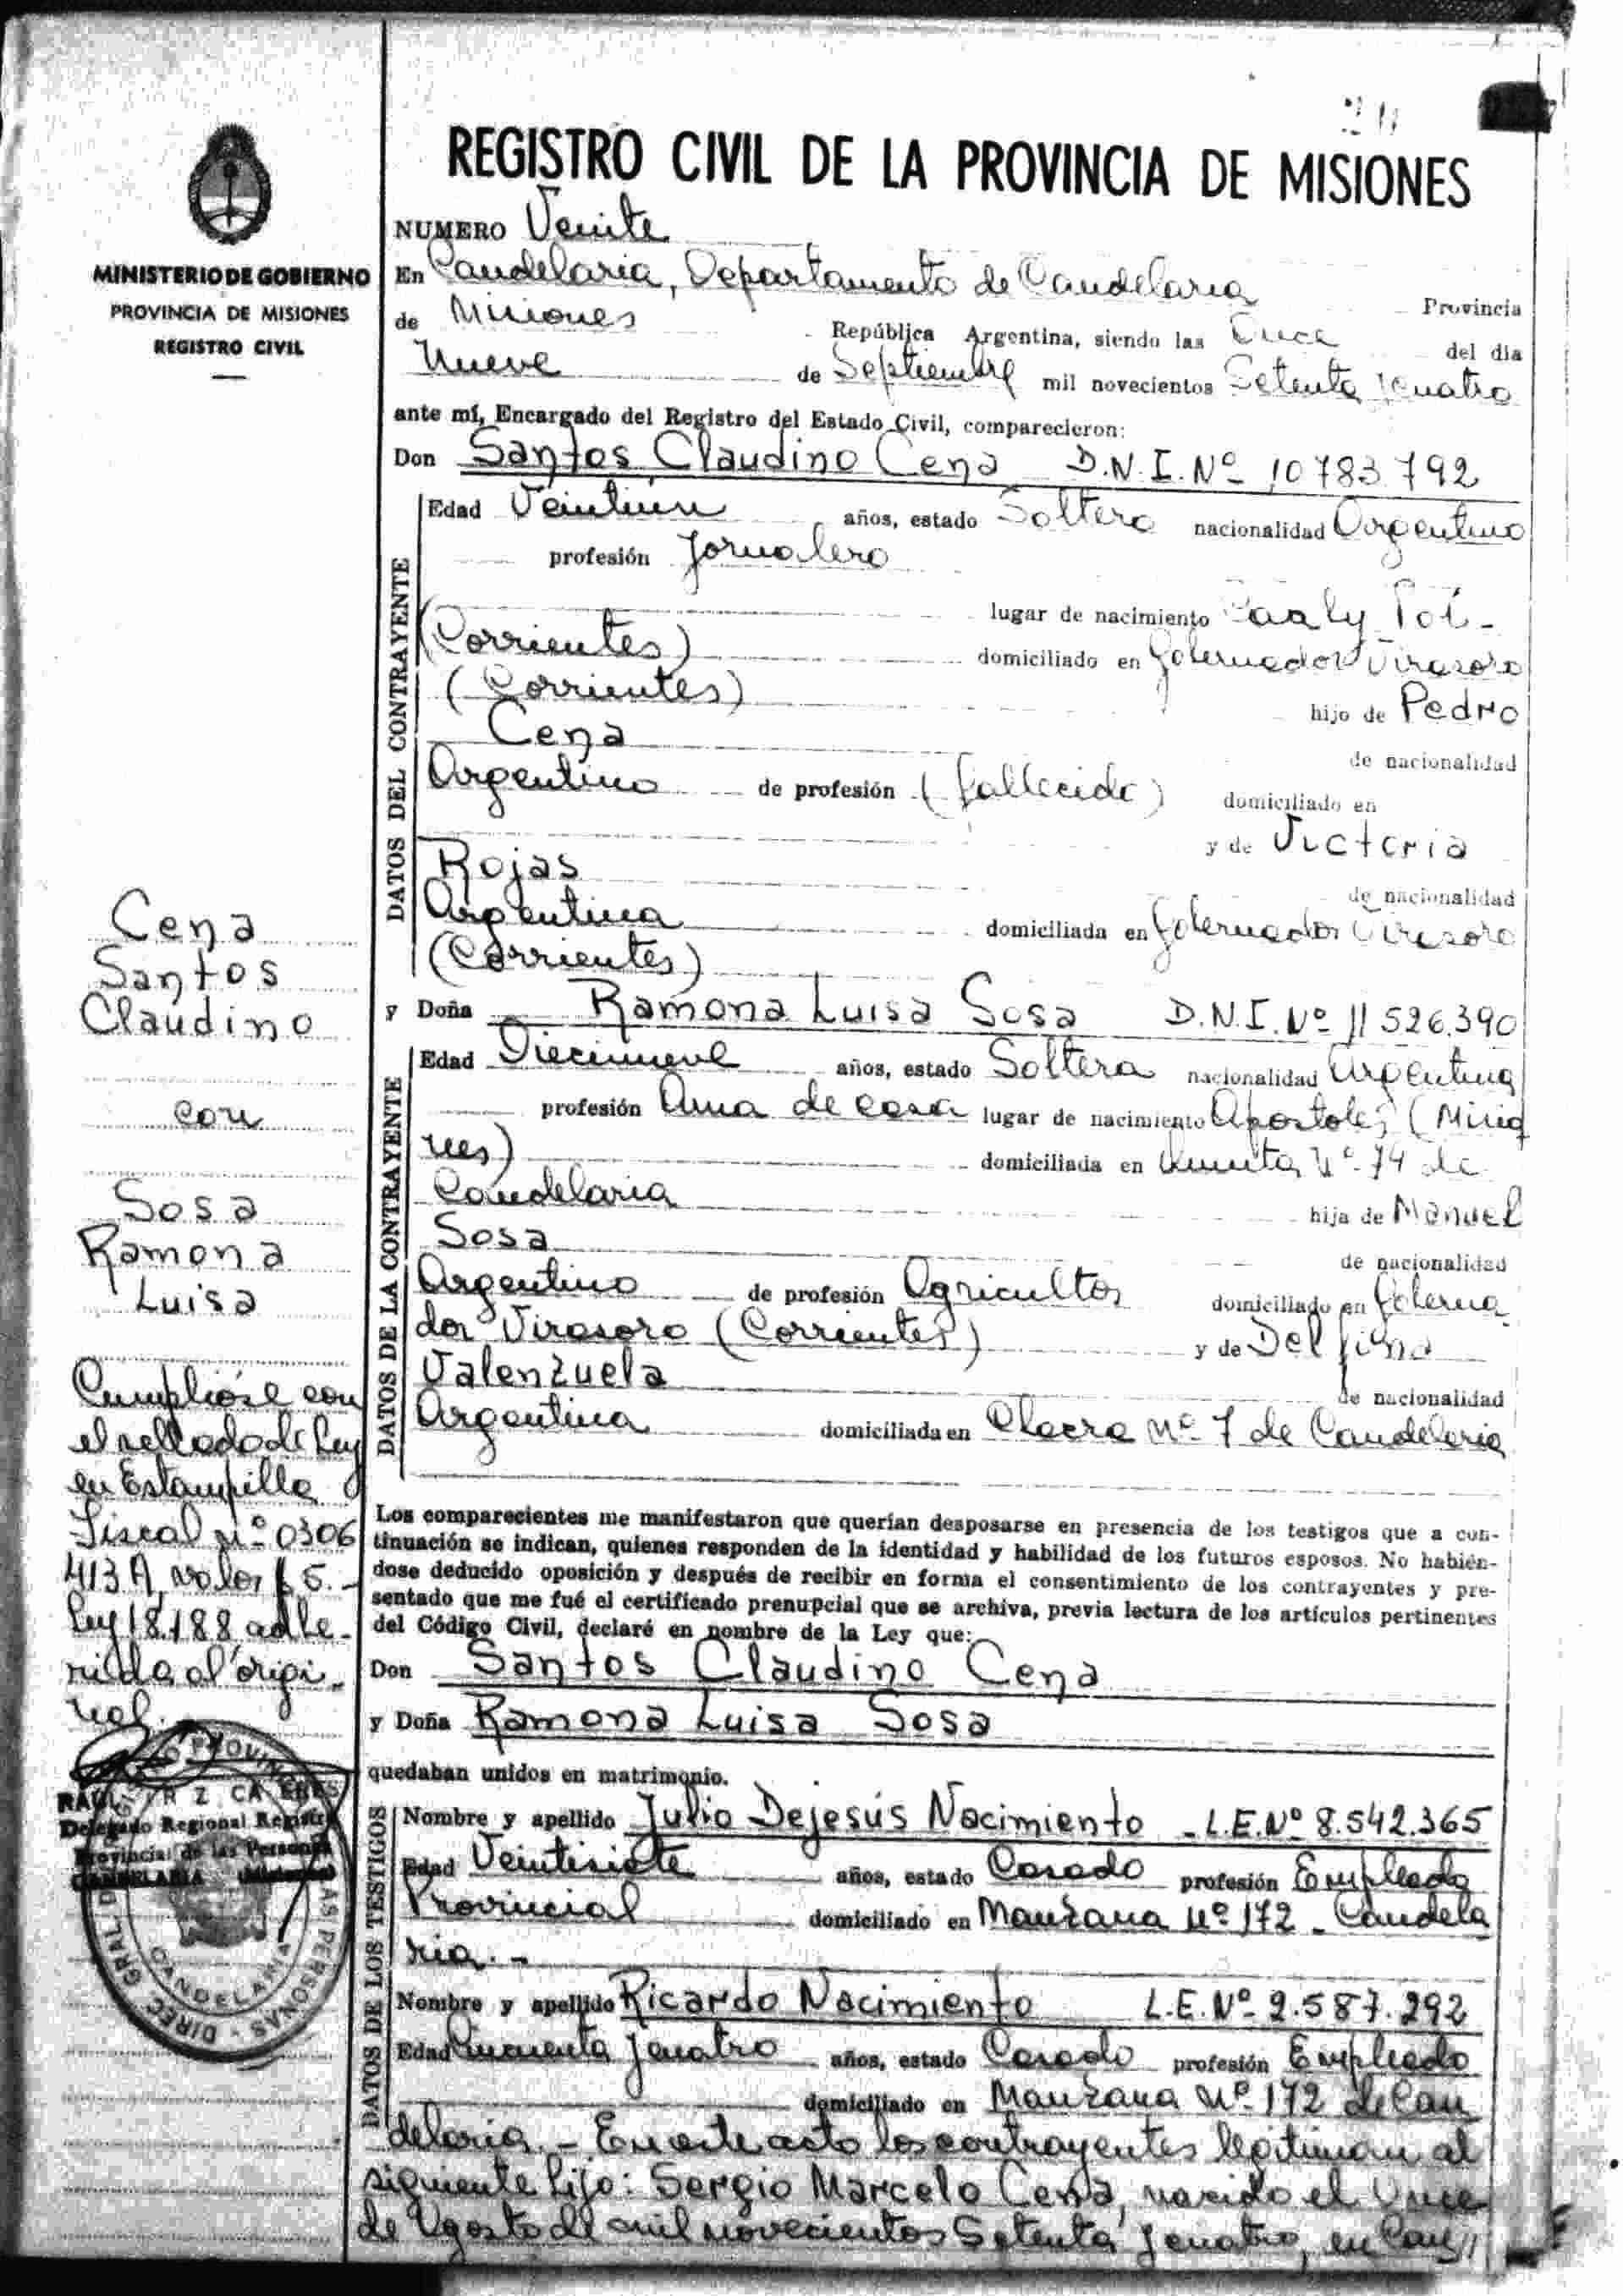 REGISTRO CIVIL DE LA PROVINCIA DE MISIONES
MINISTERIO DE GOBIERNO
PROVINCIA DE MISIONES
REGISTRO CIVIL
NUMERO Veinte
En Candelaria, Departamento de Candelaria Provincia
de Misiones República Argentina, siendo las Once del dia
Nueve de Septiembre mil novecientos Setenta y cuatro
ante mí, Encargado del Registro del Estado Civil, comparecieron:
Don Santos Claudino Cena D.N.I. Nº 10783792
DATOS DEL CONTRAYENTE
Edad Veintiún años, estado Soltero nacionalidad Argentino
profesión Jornalero
lugar de nacimiento
(Corrientes) domiciliado en Gobernador Virasoro
(Corrientes) hijo de Pedro
Cena de nacionalidad
Argentino de profesión (fallecido) domiciliado en
y de Victoria
Rojas de nacionalidad
Argentina domiciliada en Gobernador Virasoro
(Corrientes)
y Doña Ramona Luisa Sosa D.N.I. Nº 11526.390
DATOS DE LA CONTRAYENTE
Edad Diecinueve años, estado Soltera nacionalidad Argentina
profesión Ama de casa lugar de nacimiento Apóstoles (Misio
nes) domiciliada en Quinta Nº 74 de
Candelaria hija de Manuel
Sosa de nacionalidad
Argentino de profesión Agricultor domiciliado en Goberna
dor Virasoro (Corrientes) y de Delfina
Valenzuela de nacionalidad
Argentina domiciliada en Chacra Nº 7 de Candelaria
Los comparecientes me manifestaron que querían desposarse en presencia de los testigos que a con-
tinuación se indican, quienes responden de la identidad y habilidad de los futuros esposos. No habién-
dose deducido oposición y después de recibir en forma el consentimiento de los contrayentes y pre-
sentado que me fué el certificado prenupcial que se archiva, previa lectura de los artículos pertinentes
del Código Civil, declaré en nombre de la Ley que:
Don Santos Claudino Cena
y Doña Ramona Luisa Sosa
quedaban unidos en matrimonio.
DATOS DE LOS TESTIGOS
Nombre y apellido Julio Dejesús Nacimiento - L.E. Nº 8.542.365
Edad Veintisiete años, estado Casado profesión Empleado
Provincial domiciliado en Manzana Nº 172 - Candela
ria.-
Nombre y apellido Ricardo Nacimiento L.E. Nº 2.587.292
Edad Cincuenta y cuatro años, estado Casado profesión Empleado
domiciliado en Manzana Nº 172 de Can
delaria.- En este acto los contrayentes legitiman al
siguiente hijo: Sergio Marcelo Cena, nacido el Once
de Agosto de mil novecientos Setenta y cuatro, en Can//
Cena
Santos
Claudino
con
Sosa
Ramona
Luisa
Cumplióse con
el sellado de Ley
en Estampilla
Fiscal Nº 0306
413 A, valor $ 5.-
Ley 18.188 adhe-
rida al origi-
nal.
Delegado Regional Registro
Provincial de las Personas
CANDELARIA (Misiones)
CANDELARIA